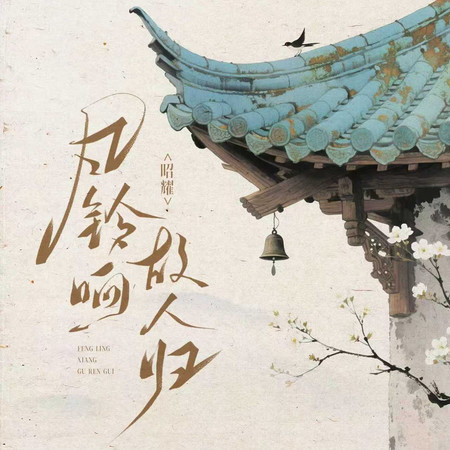 风铃响
故人归
<昭耀>
FENG LING
XIANG
GU REN GUI